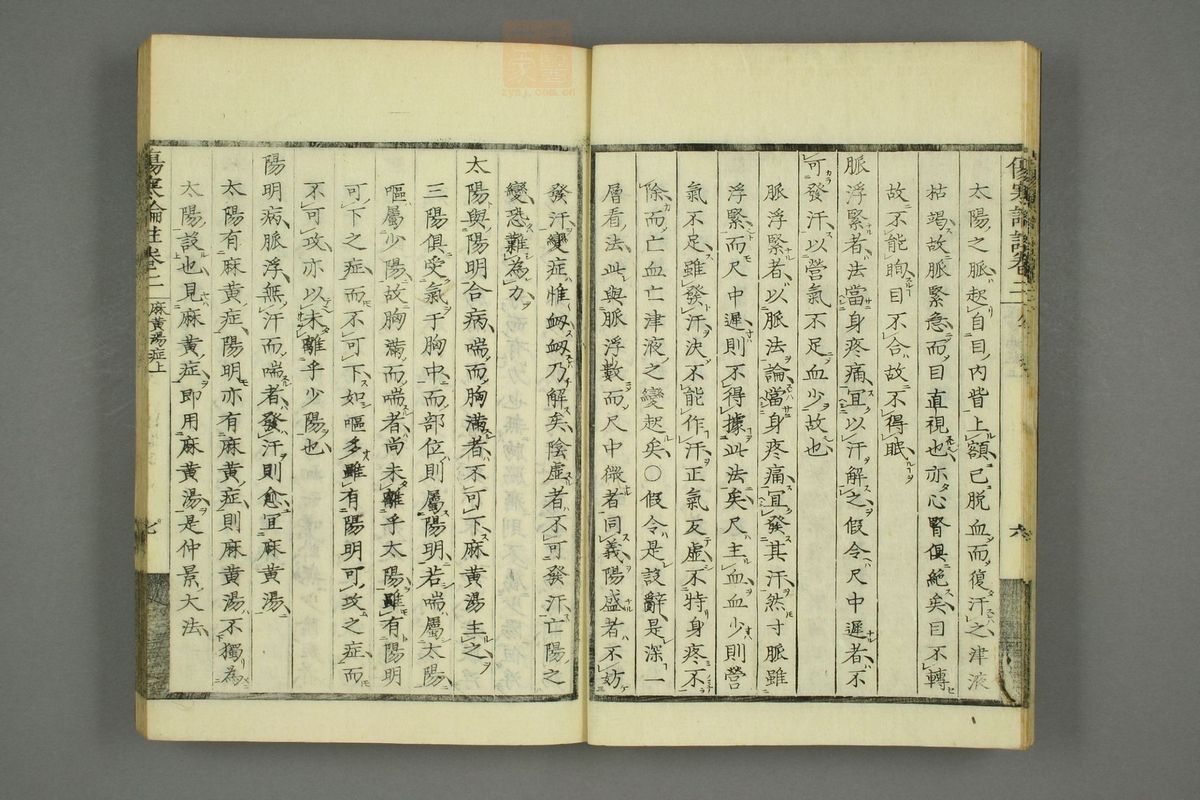 太陽之脈起自目內眥上額已脫血而復汗之津液
枯竭故脈緊急而目直視也亦心腎俱絕矣目不轉
故不能眴目不合故不得眠
脈浮緊者法當身疼痛宜以汗解之假令尺中遲者不
可發汗以營氣不足血少故也
脈浮緊者以脈法論當身疼痛宜發其汗然寸脈雖
浮緊而尺中遲則不得據此法矣尺主血血少則營
氣不足雖發汗決不能作汗正氣反虛不特身疼不
除而亡血亡津液之變起矣○假令是設辭是深一
層看法此與脈浮數而尺中微者同義陽盛者不妨
發汗變症惟衄衄乃解矣陰虛者不可發汗亡陽之
變恐難為力
太陽與陽明合病喘而胸滿者不可下麻黃湯主之
三陽俱受氣于胸中而部位則屬陽明若喘屬太陽
嘔屬少陽故胸滿而喘者尚未離乎太陽雖有陽明
可下之症而不可下如嘔多雖有陽明可攻之症而
不可攻亦以未離乎少陽也
陽明病脈浮無汗而喘者發汗則愈宜麻黃湯
太陽有麻黃症陽明亦有麻黃症則麻黃湯不獨為
太陽設也見麻黃症即用麻黃湯是仲景大法
傷寒論註卷二
麻黃湯症上
七
六
zysj.com.cn